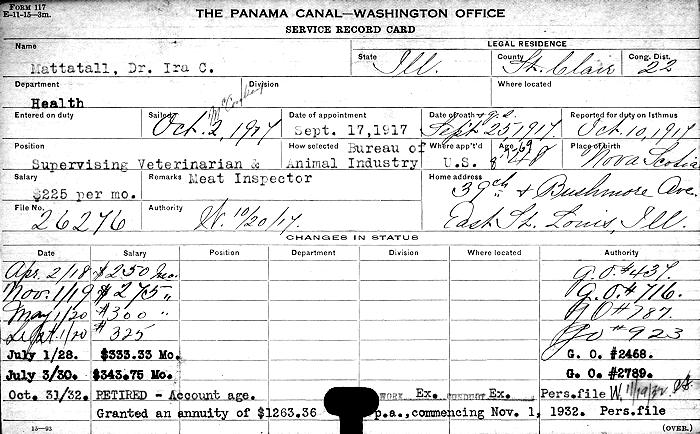 FORM 117
E-11-15-3m.
THE PANAMA CANAL—WASHINGTON OFFICE
SERVICE RECORD CARD
Name
LEGAL RESIDENCE
Mattatall, Dr. Ira C.
State Ill.
County St. Clair
Cong. Dist. 22
Department
Division
Where located
Health
Entered on duty
Sailed Oct. 2, 1917
Date of appointment Sept. 17, 1917
Date of oath Sept 25, 1917.
Reported for duty on Isthmus Oct. 10, 1917
Position
How selected Bureau of
Where app't'd
Age
Place of birth
Supervising Veterinarian &
Animal Industry
U.S.
48
Nova Scotia
Salary
Remarks Meat Inspector
Home address 39th & Bushmore Ave.
$225 per mo.
File No. 26276
Authority W. 10/20/17.
East St. Louis, Ill.
CHANGES IN STATUS
Date Salary Position Department Division Where located Authority
Apr. 2/18 $250 mo. G.O. #437.
Nov. 1/19 $275 " G.O. #716.
May 1/20 $300 " GO #787.
Sept. 1/20 $325 GO #923
July 1/28. $333.33 Mo. G. O. #2468.
July 3/30. $343.75 Mo. G. O. #2789.
Oct. 31/32. RETIRED - Account age. WORK Ex. CONDUCT Ex. Pers.file W. 11/19/32
Granted an annuity of $1263.36 p.a., commencing Nov. 1, 1932. Pers.file
15-93
(OVER.)